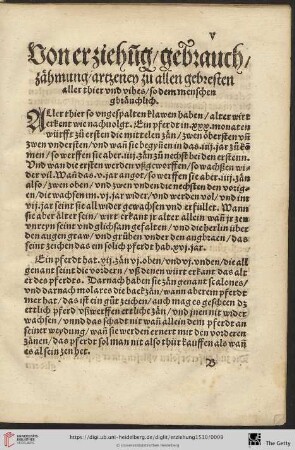 v
Von erziehũg/ gebrauch/
zähmung/ artzeney zu allen gebresten
aller thier vnd vihes/ so dem menschen
gbräuchlich.
ALler thier so vngespalten klawen haben/ alter wirt
erkent wie nachuolgt. Ein pferdt im .xxx. monaten
würfft zů ersten die mittelen zän/ zwen öbersten vñ
zwen vndersten/ vnd wañ sie begynnen in das .iiij. jar zů kõ
men/ so werffen sie aber .iiij. zän zů nechst bei den ersten.
Vnd wan die ersten werden vßgeworffen/ so wachsen wi
der vil. Wañ das .v. jar angot/ so werffen sie aber .iiij. zän
also/ zwen oben/ vnd zwen vnden die nechsten den vorig
en/ die wachsen im .vj. jar wider/ vnd werden vol/ vnd im
vij. jar seint sie all wider gewachsen vnd erfüllet. Wann
sie aber älter sein/ wirt erkant jr alter allein wañ jr zen
vnreyn seint vnd glichsam gefalten/ vnd die herlin über
den augen graw/ vnd grüben vnder den augbraen/ das
seint zeichen das ein solich pferdt hab .xvj. jar.
Ein pferdt hat .xij. zän .vj. oben/ vnd .vj. vnden/ die all
genant seint die vordern/ vß denen würt erkant das alt
er des pferdes. Darnach haben sie zän genant scalones/
vnd darnach molares die backzän/ wann aber ein pferdt
mer hat/ das ist ein gůt zeichen/ auch mag es gescheen dz
ettlich pferd vßwerffen ettliche zän/ vnd jnen nit wider
wachsen/ vnnd das schadt nit wañ allein dem pferdt an
seiner weydung/ wañ sie werden ernert mit den vorderen
zänen/ das pferdt sol man nit also thür kauffen als wañ
es al sein zen het.
B
https://digi.ub.uni-heidelberg.de/diglit/erziehung1530/0009
© Universitätsbibliothek Heidelberg
The Getty